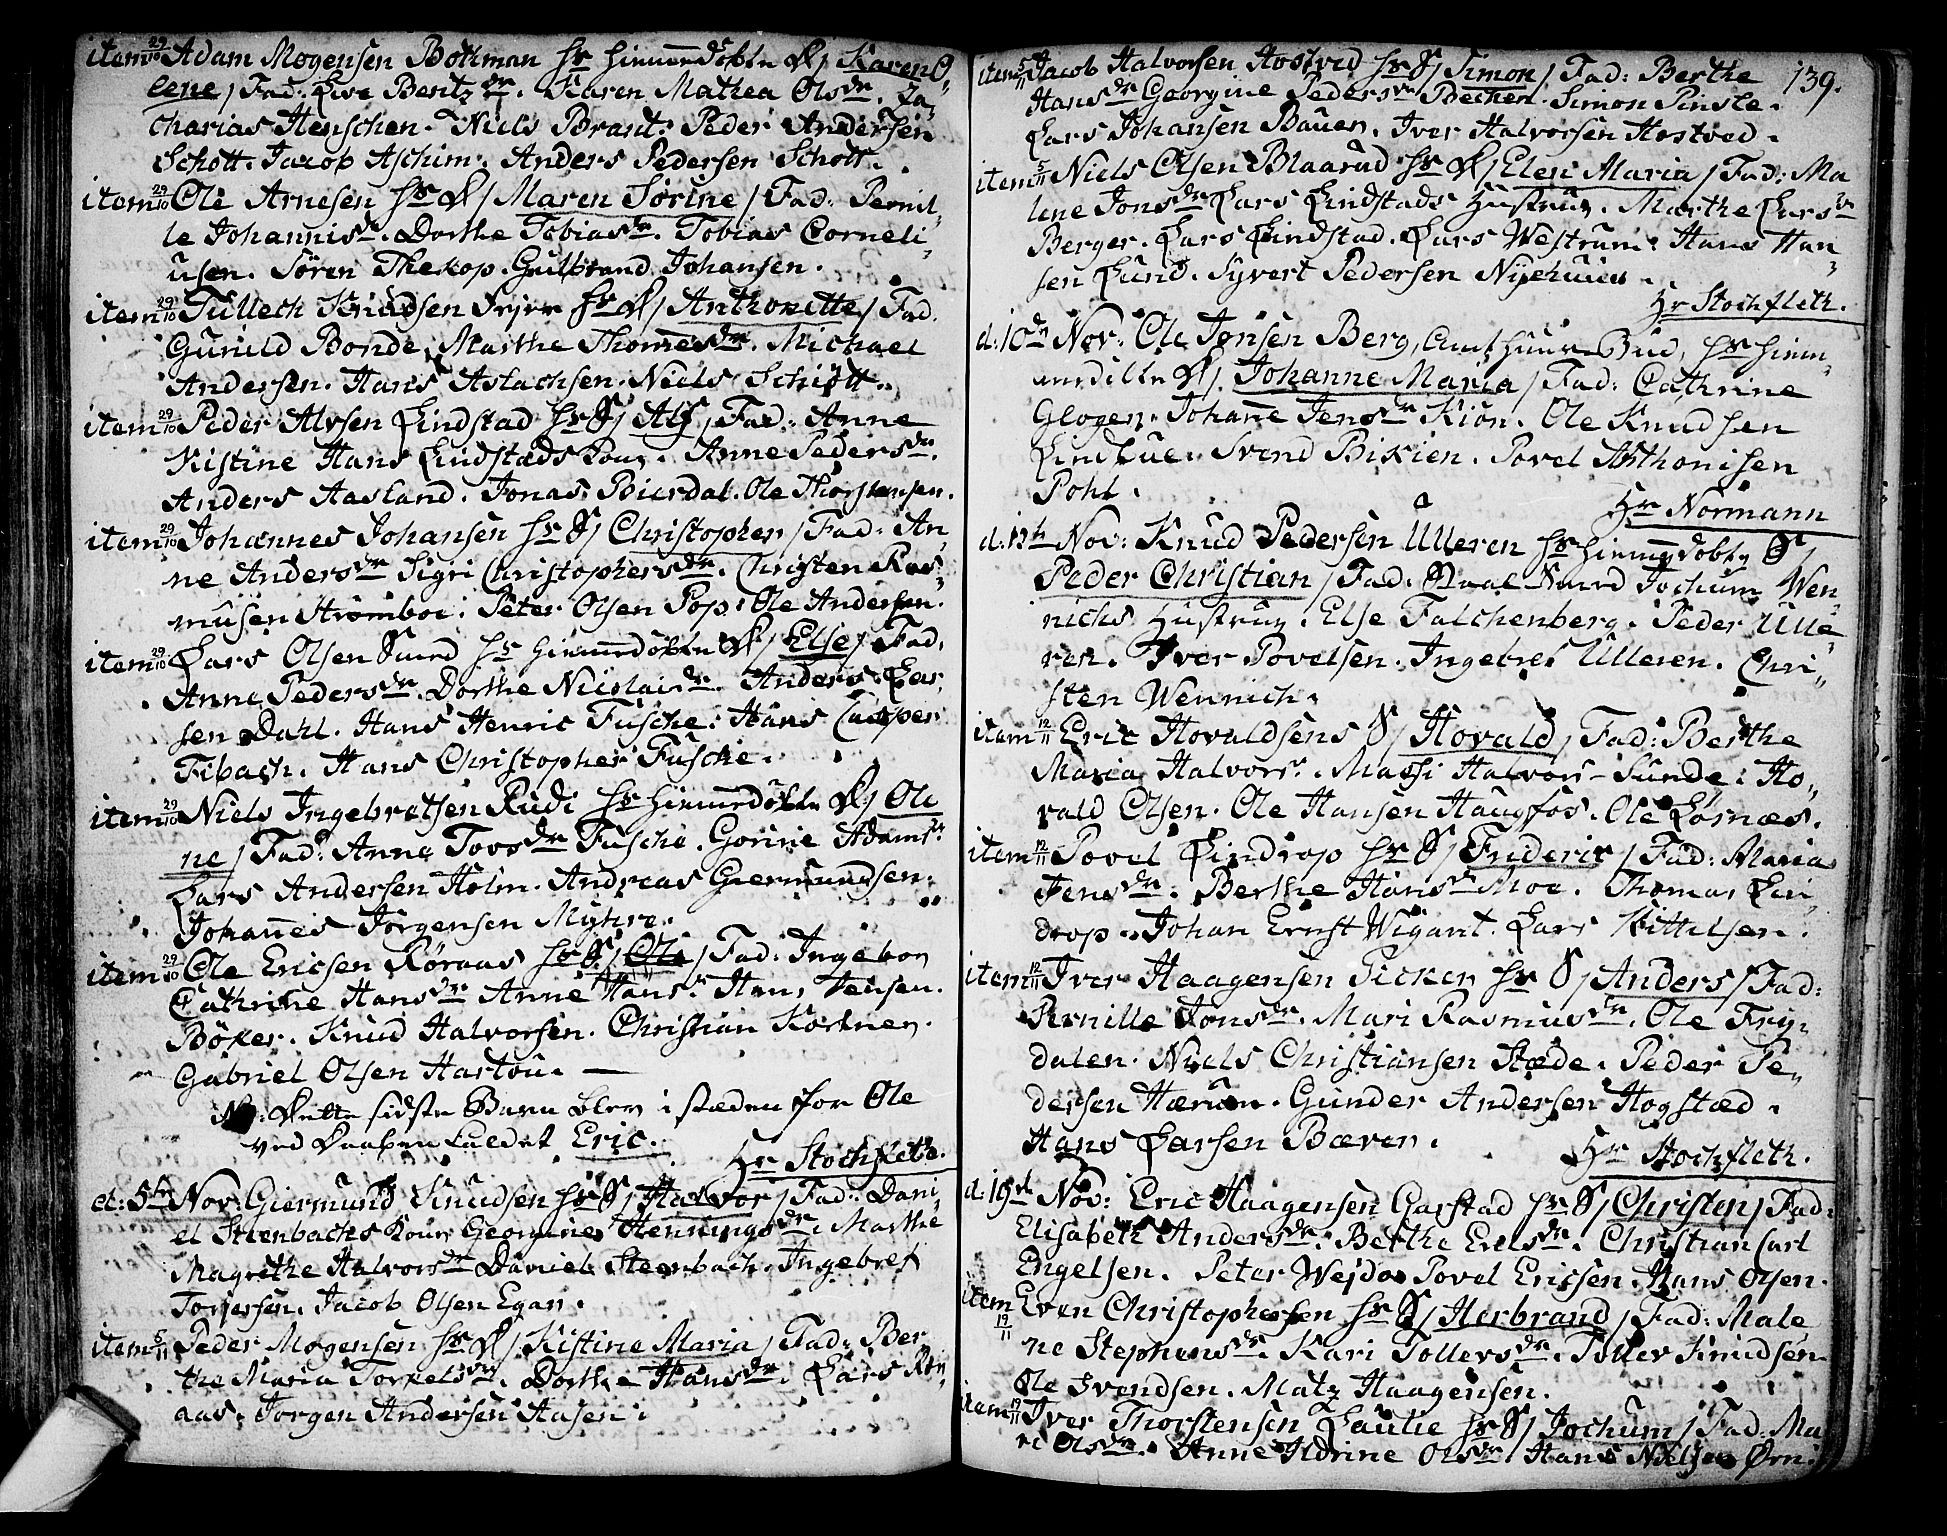 item 29/10 Adam Mogensen Bothman hr hiemmedøbte D/ Karen O-
lene / Fad: Live Bentz dr. Karen Mathea Ols dr. Za-
charias Henschen. Niels Brant. Peder Andersen
Schott. Jacob Aschim. Anders Pedersen Schott.
item 29/10 Ole Arnesen hr D/ Maren Sørine / Fad: Pernil-
le Johannis dr. Dorthe Tobias dr. Tobias Corneli-
usen. Sören Thexop. Gulbrand Johansen.
item 29/10 Tullech Knudsen hr D/ Anthonette / Fad.
Gunild Bonde, Marthe Thomes dr. Michael
Andersen. Hans Aslachsen. Niels Schiøtt.
item 29/10 Peder Alvsen Lindstad hr S/ Alf / Fad: Anne
Kistine Hans Lindstads Kone. Anne Peders dr.
Anders Aasland. Jonas Bierdal. Ole Thorstensen.
item 29/10 Johannes Johansen hr S/ Christopher / Fad: An-
ne Anders dr Sigri Christophers dr. Christen Ras-
musen Stromboe. Peter Olsen Pop. Ole Andersen.
item 29/10 Lars Olsen Sund hr hiemmedøbte D/ Else / Fad.
Anne Peders dr. Dorthe Nicolai dr. Anders Lar-
sen Dahl. Hans Henric Fusche. Hans Casper
Fibach. Hans Christopher Fusche.
item 29/10 Niels Ingebretsen Rudi hr hiemmedøbte D/ Ole
ne / Fad: Anne Tovs dr Fusche. Gorine Adams dr.
Lars Andersen Holm. Andreas Giermundsen.
Johannes Jörgensen Myhre.
item 29/10 Ole Ericsen Röraas hr S/ Ole / Fad: Ingebor
Cathrine Hans dr Anne Hans dr. Hans Jensen.
Böker. Knud Halvorsen. Christian Kortner.
Gabriel Olsen Hartou. —
NB: Dette sidste Barn blev i stæden for Ole
ved Daaben kaldet Eric.
Hr Stochfleth.
d: 5te Nov: Giermund Knudsen hr S/ Halvor / Fad: Dani-
el Steenbachs Kone Georgine Hennings dr. Marthe
Magrethe Halvors dr Daniel Steenbach. Ingebret
Torjersen. Jacob Olsen Egar.
item 5/11 Peder Mogensen hr D/ Kistine Maria / Fad: Ber
the Maria Torkels dr. Dorthe Hans dr. Lars Rør-
aas. Jörgen Andersen Aasen.
139.
item 5/11 Jacob Halvorsen Hostved hr S/ Simon / Fad: Berthe
Hans dr Georgine Peders dr Bechen. Simon Pinsle.
Lars Johansen Bauer. Iver Halvorsen Hostved.
item 5/11 Niels Olsen Blaarud hr D/ Elen Maria / Fad: Ma
lene Jons dr Lars Lindstads Hustrue. Marthe Lars dr
Berger. Lars Lindstad. Lars Westrum. Hans Han-
sen Lund. Syvert Pedersen Nyehuus.
Hr Stochfleth.
d: 10de Nov: Ole Jonsen Berg, Amthuus Bud, hr hiem-
medøbte D/. Johanne Maria / Fad: Cathrine
Glogen. Johanne Jens dr Kiön. Ole Knudsen
Lindhue. Svend Bikien. Povel Anthonisen
Pohl.
Hr Normann
d: 12te Nov: Knud Pedersen Ulleren hr hiemmedøbte S/
Peder Christian / Fad: Jochum Wen-
nichs Hustrue. Else Falchenberg. Peder Ulle-
ren. Iver Povelsen. Ingebret Ulleren. Chri-
sten Wennich.
item 12/11 Eric Hovaldsens S/ Hovald / Fad: Berthe
Maria Halvors dr. Massi Halvors Sunde. Ho-
vald Olsen. Ole Hansen Haugfos. Ole Lörnæs.
item 12/11 Povel Lindrop hr S/ Frideric / Fad: Maria
Jens dr. Berthe Hans dr Moe. Thomas Lin-
drop. Johan Ernst Wigant. Lars Kittelsen.
item 12/11 Iver Haagensen Ticker hr S/ Anders / Fad:
Pernille Jons dr. Mari Rasmus dr. Ole Fry-
dalen. Niels Christiansen Stæde. Peder Pe-
dersen Hærum. Gunder Andersen Hogstæd.
Hans Larsen Bæver.
Hr Stochfleth.
d: 19de Nov: Eric Haagensen Garstad hr S/ Christen / Fad:
Elisabeth Anders dr. Berthe Evels dr. Christian Carl
Engelsen. Peter Wejdo Povel Ericsen. Hans Olsen.
item 19/11 Even Christophersen hr S/ Herbrand / Fad: Male
ne Stephens dr. Kari Tollers dr. Toller Knudsen
Ole Svendsen. Matz Haagensen.
item 19/11 Iver Thorstensen Lautie hr S/ Jochum / Fad: Ma
ri Ols dr. Anne Aldrine Ols dr Hans Nielsen Örn-